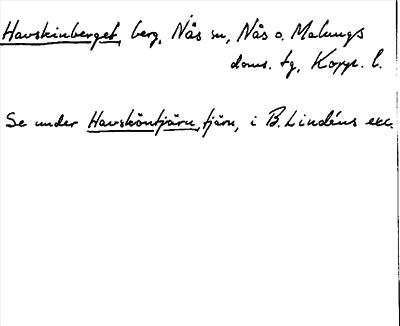 Havskinberget, berg, Nås sn, Nås o. Malungs
doms. tg, Kopp. l.
Se under Havsköntjärn, tjärn, i B. Lindéns exc.